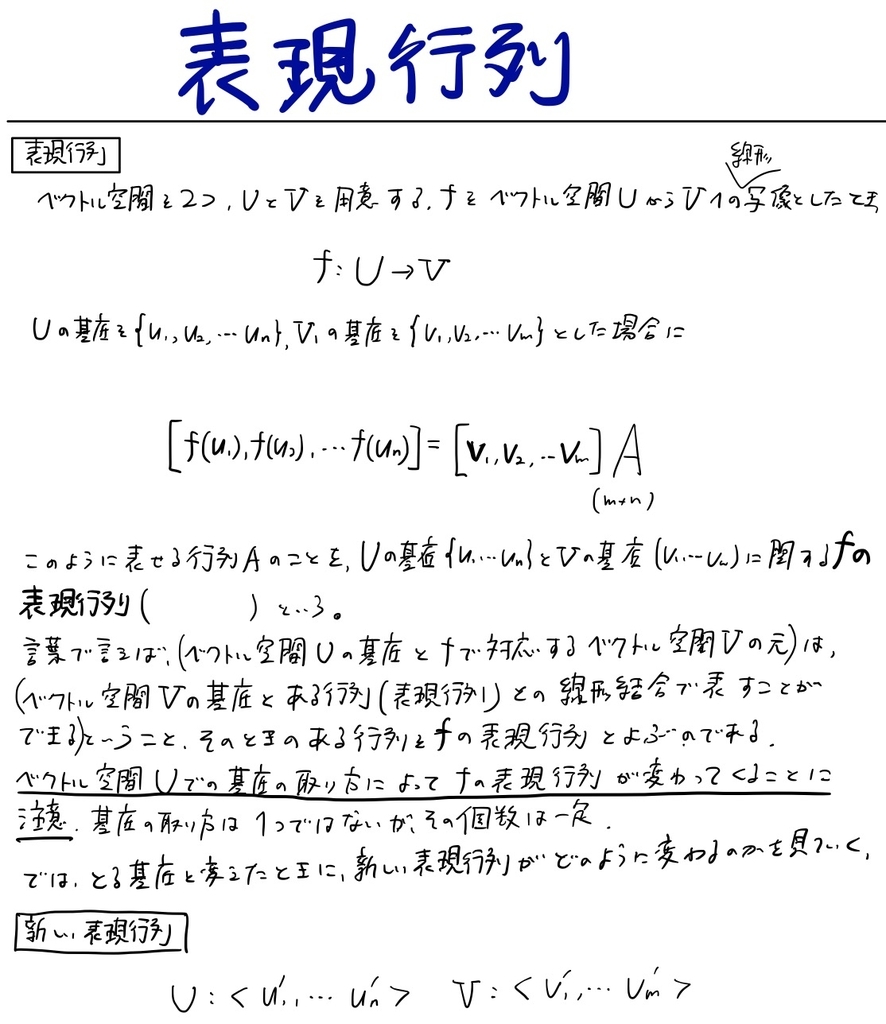 表現行列
表現行列
線形
ベクトル空間を2つ, UとVを用意する. fをベクトル空間UからVへの写像としたとき
f: U → V
Uの基底を{u₁, u₂, … uₙ}, V₁の基底を{v₁, v₂, … vₘ}とした場合に
[f(u₁), f(u₂), … f(uₙ)] = [v₁, v₂, … vₘ] A
(m×n)
このように表せる行列Aのことを, Uの基底{u₁…uₙ}とVの基底(v₁…vₘ)に関するfの
表現行列( ) という。
言葉で言えば, (ベクトル空間Uの基底とfで対応するベクトル空間Vの元)は,
(ベクトル空間Vの基底とある行列(表現行列)との線形結合で表すことが
できる)ということ. そのときのある行列をfの表現行列とよぶのである.
ベクトル空間Uでの基底の取り方によってfの表現行列が変わってくることに
注意. 基底の取り方は1つではないが, その個数は一定.
では, とる基底を変えたときに, 新しい表現行列がどのように変わるのかを見ていく.
新しい表現行列
U: < u₁′, … uₙ′ > V: < v₁′, … vₘ′ >